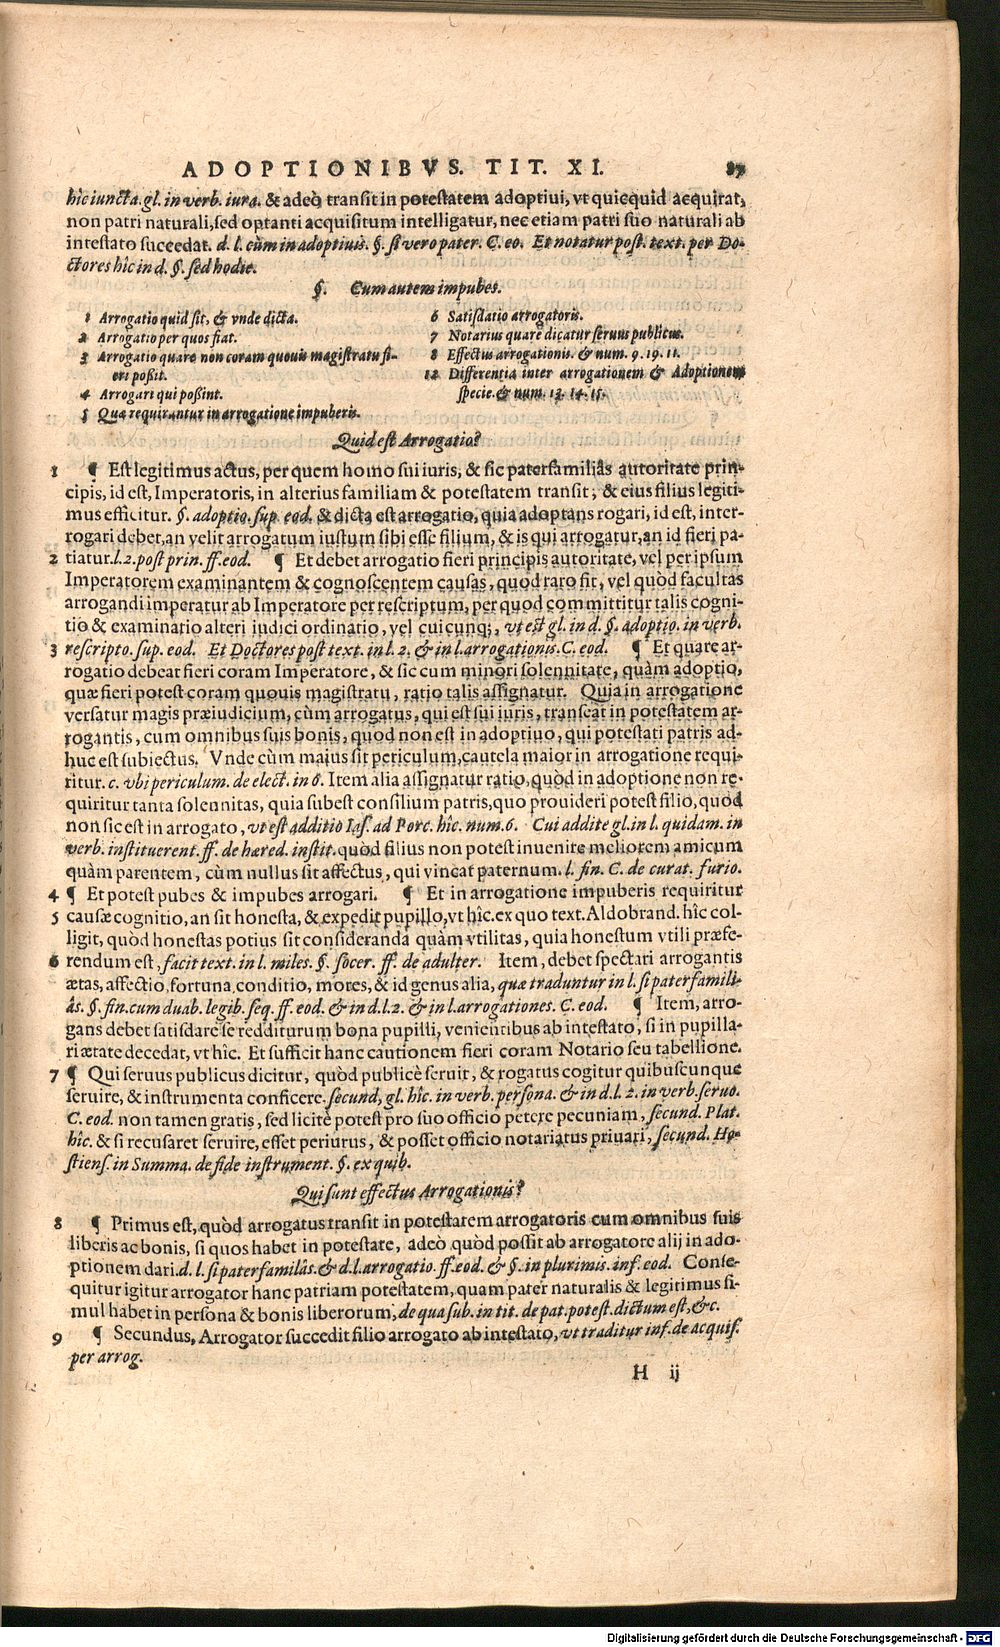 ADOPTIONIBVS. TIT. XI. 87
hîc iuncta. gl. in verb. iura. & adeò transit in potestatem adoptiui, vt quicquid acquirat,
non patri naturali, sed optanti acquisitum intelligatur, nec etiam patri suo naturali ab
intestato succedat. d. l. cùm in adoptiuis. §. si vero pater. C. eo. Et notatur post. text. per Do-
ctores hîc in d. §. sed hodie.
§. Cum autem impubes.
1 Arrogatio quid sit, & vnde dicta.
2 Arrogatio per quos fiat.
3 Arrogatio quare non coram quouis magistratu fi-
eri possit.
4 Arrogari qui possint.
5 Quæ requirantur in arrogatione impuberis.
6 Satisdatio arrogatoris.
7 Notarius quare dicatur seruus publicus.
8 Effectus arrogationis. & num. 9. 19. 11.
12 Differentia inter arrogationem & Adoptionem
specie. & num. 13. 14. 15.
Quid est Arrogatio?
1 ¶ Est legitimus actus, per quem homo sui iuris, & sic paterfamiliâs autoritate prin-
cipis, id est, Imperatoris, in alterius familiam & potestatem transit, & eius filius legiti-
mus efficitur. §. adoptio. sup. eod. & dicta est arrogatio, quia adoptans rogari, id est, inter-
rogari debet, an velit arrogatum iustum sibi esse filium, & is qui arrogatur, an id fieri pa-
2 tiatur. l. 2. post prin. ff. eod. ¶ Et debet arrogatio fieri principis autoritate, vel per ipsum
Imperatorem examinantem & cognoscentem causas, quod raro fit, vel quòd facultas
arrogandi imperatur ab Imperatore per rescriptum, per quod committitur talis cogni-
tio & examinatio alteri iudici ordinatio, vel cuicunq;, vt est gl. in d. §. adoptio. in verb.
3 rescripto. sup. eod. Et Doctores post text. in l. 2. & in l. arrogationis. C. eod. ¶ Et quare ar-
rogatio debeat fieri coram Imperatore, & sic cum minori solennitate, quàm adoptio,
quæ fieri potest coram quouis magistratu, ratio talis assignatur. Quia in arrogatione
versatur magis præiudicium, cùm arrogatus, qui est sui iuris, transeat in potestatem ar-
rogantis, cum omnibus suis bonis, quod non est in adoptiuo, qui potestati patris ad-
huc est subiectus. Vnde cùm maius sit periculum, cautela maior in arrogatione requi-
ritur. c. vbi periculum. de elect. in 6. Item alia assignatur ratio, quòd in adoptione non re-
quiritur tanta solennitas, quia subest consilium patris, quo prouideri potest filio, quod
non sic est in arrogato, vt est additio Ias. ad Porc. hîc. num. 6. Cui addite gl. in l. quidam. in
verb. instituerent. ff. de hæred. instit. quòd filius non potest inuenire meliorem amicum
quàm parentem, cùm nullus sit affectus, qui vincat paternum. l. fin. C. de curat. furio.
4 ¶ Et potest pubes & impubes arrogari. ¶ Et in arrogatione impuberis requiritur
5 causæ cognitio, an sit honesta, & expedit pupillo, vt hîc. ex quo text. Aldobrand. hîc col-
ligit, quòd honestas potius sit consideranda quàm vtilitas, quia honestum vtili præfe-
6 rendum est, facit text. in l. miles. §. socer. ff. de adulter. Item, debet spectari arrogantis
ætas, affectio, fortuna, conditio, mores, & id genus alia, quæ traduntur in l. si paterfamili-
âs. §. fin. cum duab. legib. seq. ff. eod. & in d. l. 2. & in l. arrogationes. C. eod. ¶ Item, arro-
gans debet satisdare se redditurum bona pupilli, venientibus ab intestato, si in pupilla-
ri ætate decedat, vt hîc. Et sufficit hanc cautionem fieri coram Notario seu tabellione.
7 ¶ Qui seruus publicus dicitur, quòd publicè seruit, & rogatus cogitur quibuscunque
seruire, & instrumenta conficere. secund. gl. hîc. in verb. persona. & in d. l. 2. in verb. seruo.
C. eod. non tamen gratis, sed licitè potest pro suo officio petere pecuniam, secund. Plat.
hîc. & si recusaret seruire, esset periurus, & posset officio notariatus priuari, secund. Ho-
stiens. in Summa. de fide instrument. §. ex quib.
Qui sunt effectus Arrogationis?
8 ¶ Primus est, quòd arrogatus transit in potestatem arrogatoris cum omnibus suis
liberis ac bonis, si quos habet in potestate, adeò quòd possit ab arrogatore alij in ado-
ptionem dari. d. l. si paterfamilâs. & d. l. arrogatio. ff. eod. & §. in plurimis. inf. eod. Conse-
quitur igitur arrogator hanc patriam potestatem, quam pater naturalis & legitimus si-
mul habet in persona & bonis liberorum, de qua sub. in tit. de pat. potest. dictum est, &c.
9 ¶ Secundus, Arrogator succedit filio arrogato ab intestato, vt traditur inf. de acquis.
per arrog.
H ij
Digitalisierung gefördert durch die Deutsche Forschungsgemeinschaft - DFG